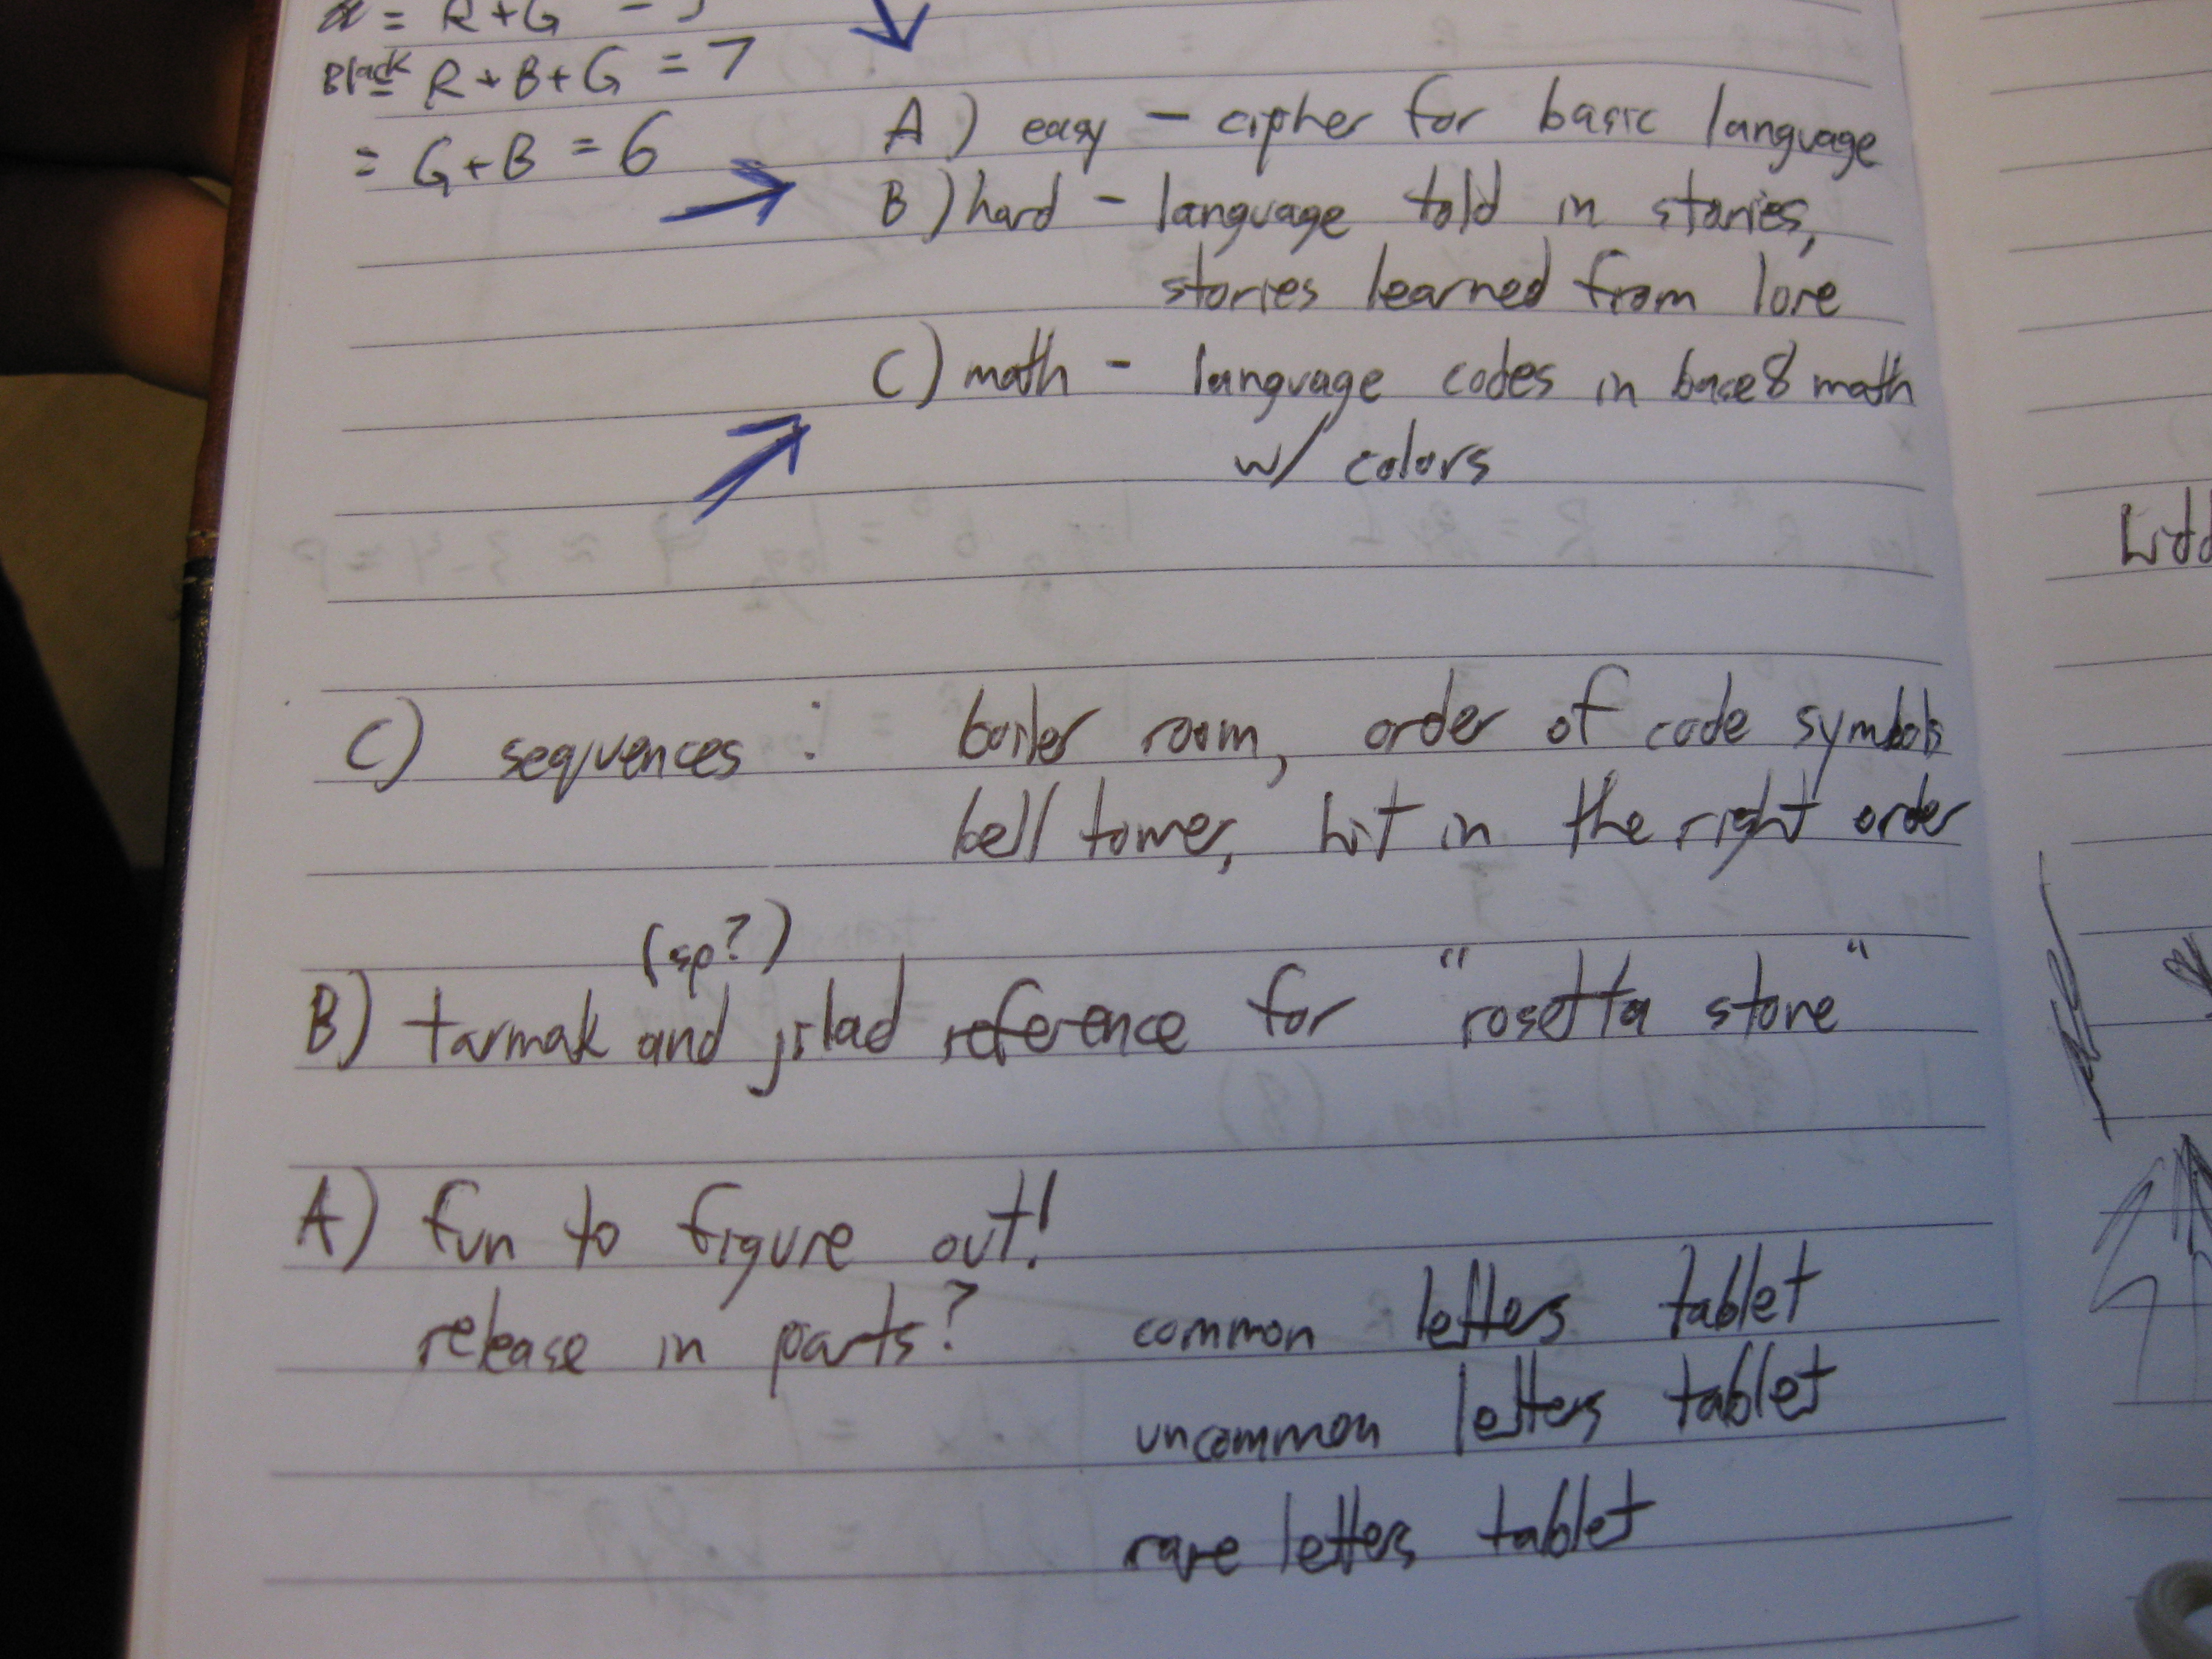 = R+G = 5
Black = R+B+G = 7
= G+B = 6
A) easy - cipher for basic language
B) hard - language told in stories,
stories learned from lore
C) math - language codes in base 8 math
w/ colors
C) sequences : boiler room, order of code symbols
bell tower, hit in the right order
(sp?)
B) tarmak and jilad reference for "rosetta stone"
A) fun to figure out!
release in parts? common letters tablet
uncommon letters tablet
rare letters tablet